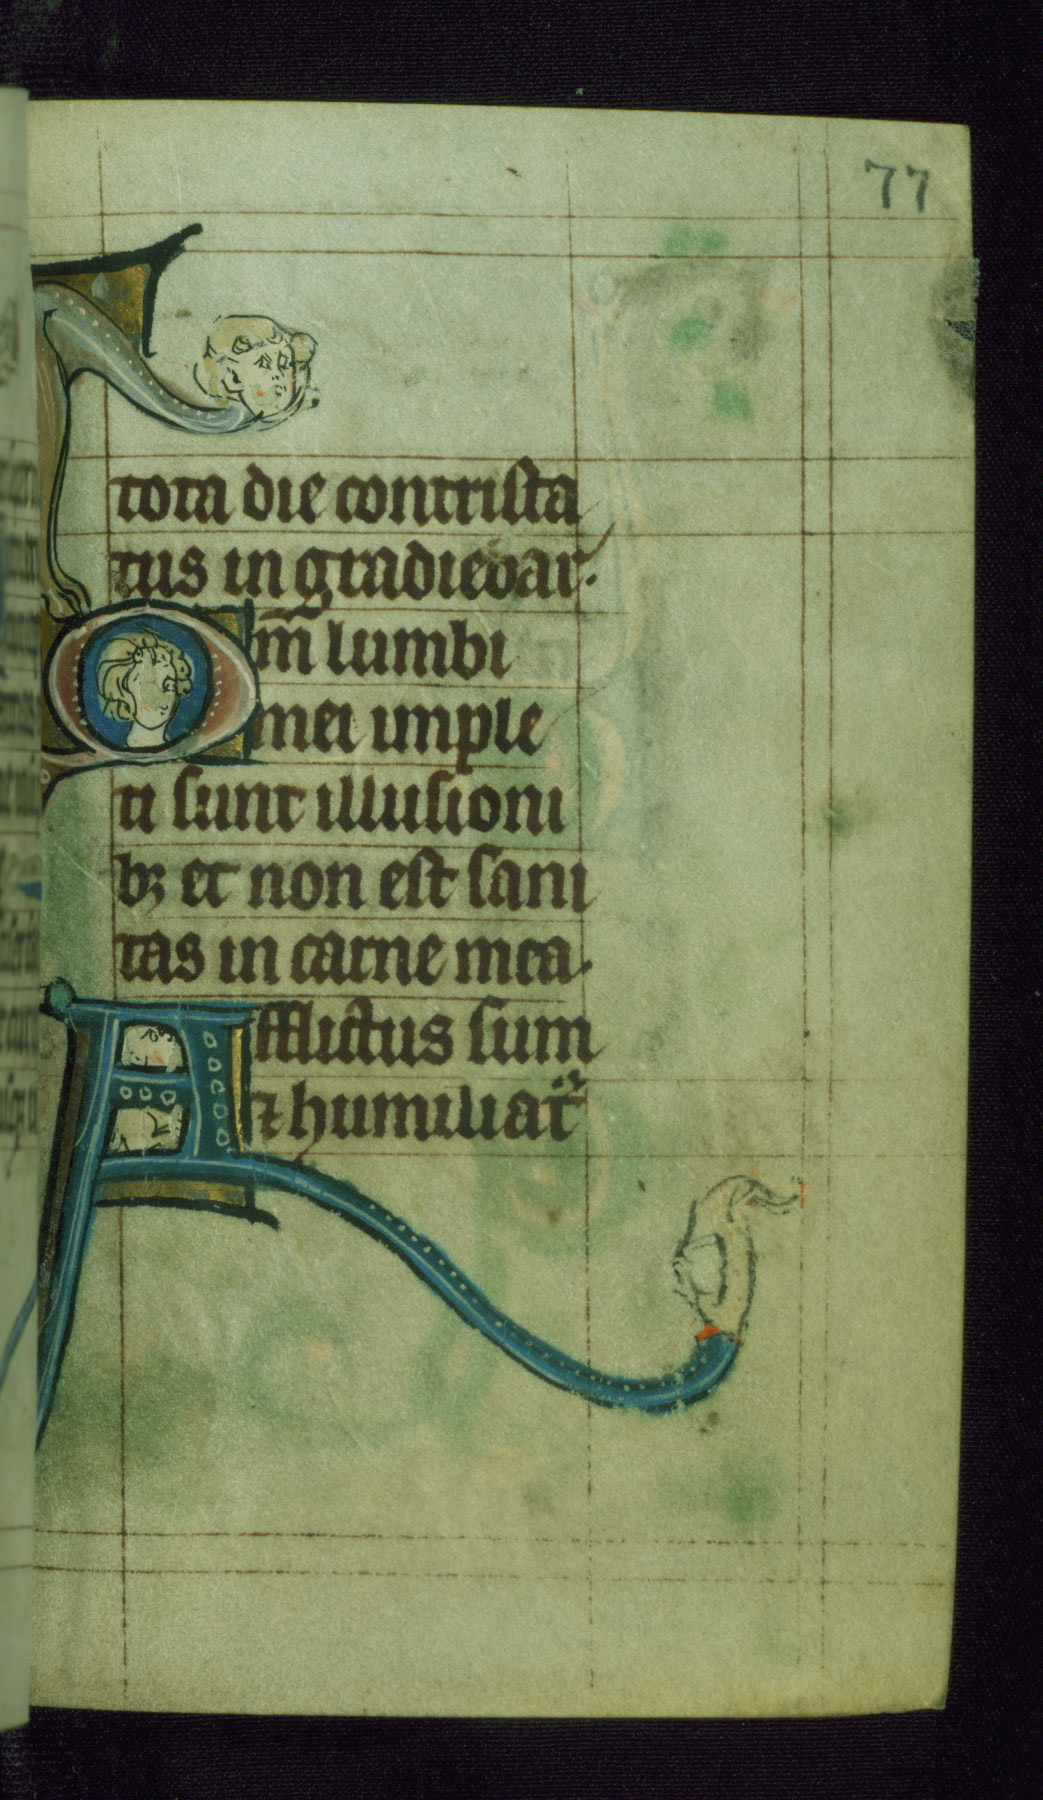 77
tota die contrista
tus in gradiebar.
Qm̄ lumbi
mei imple
ti sunt illusioni
bꝫ et non est sani
tas in carne mea.
Afflictus sum
⁊ humiliat᷑